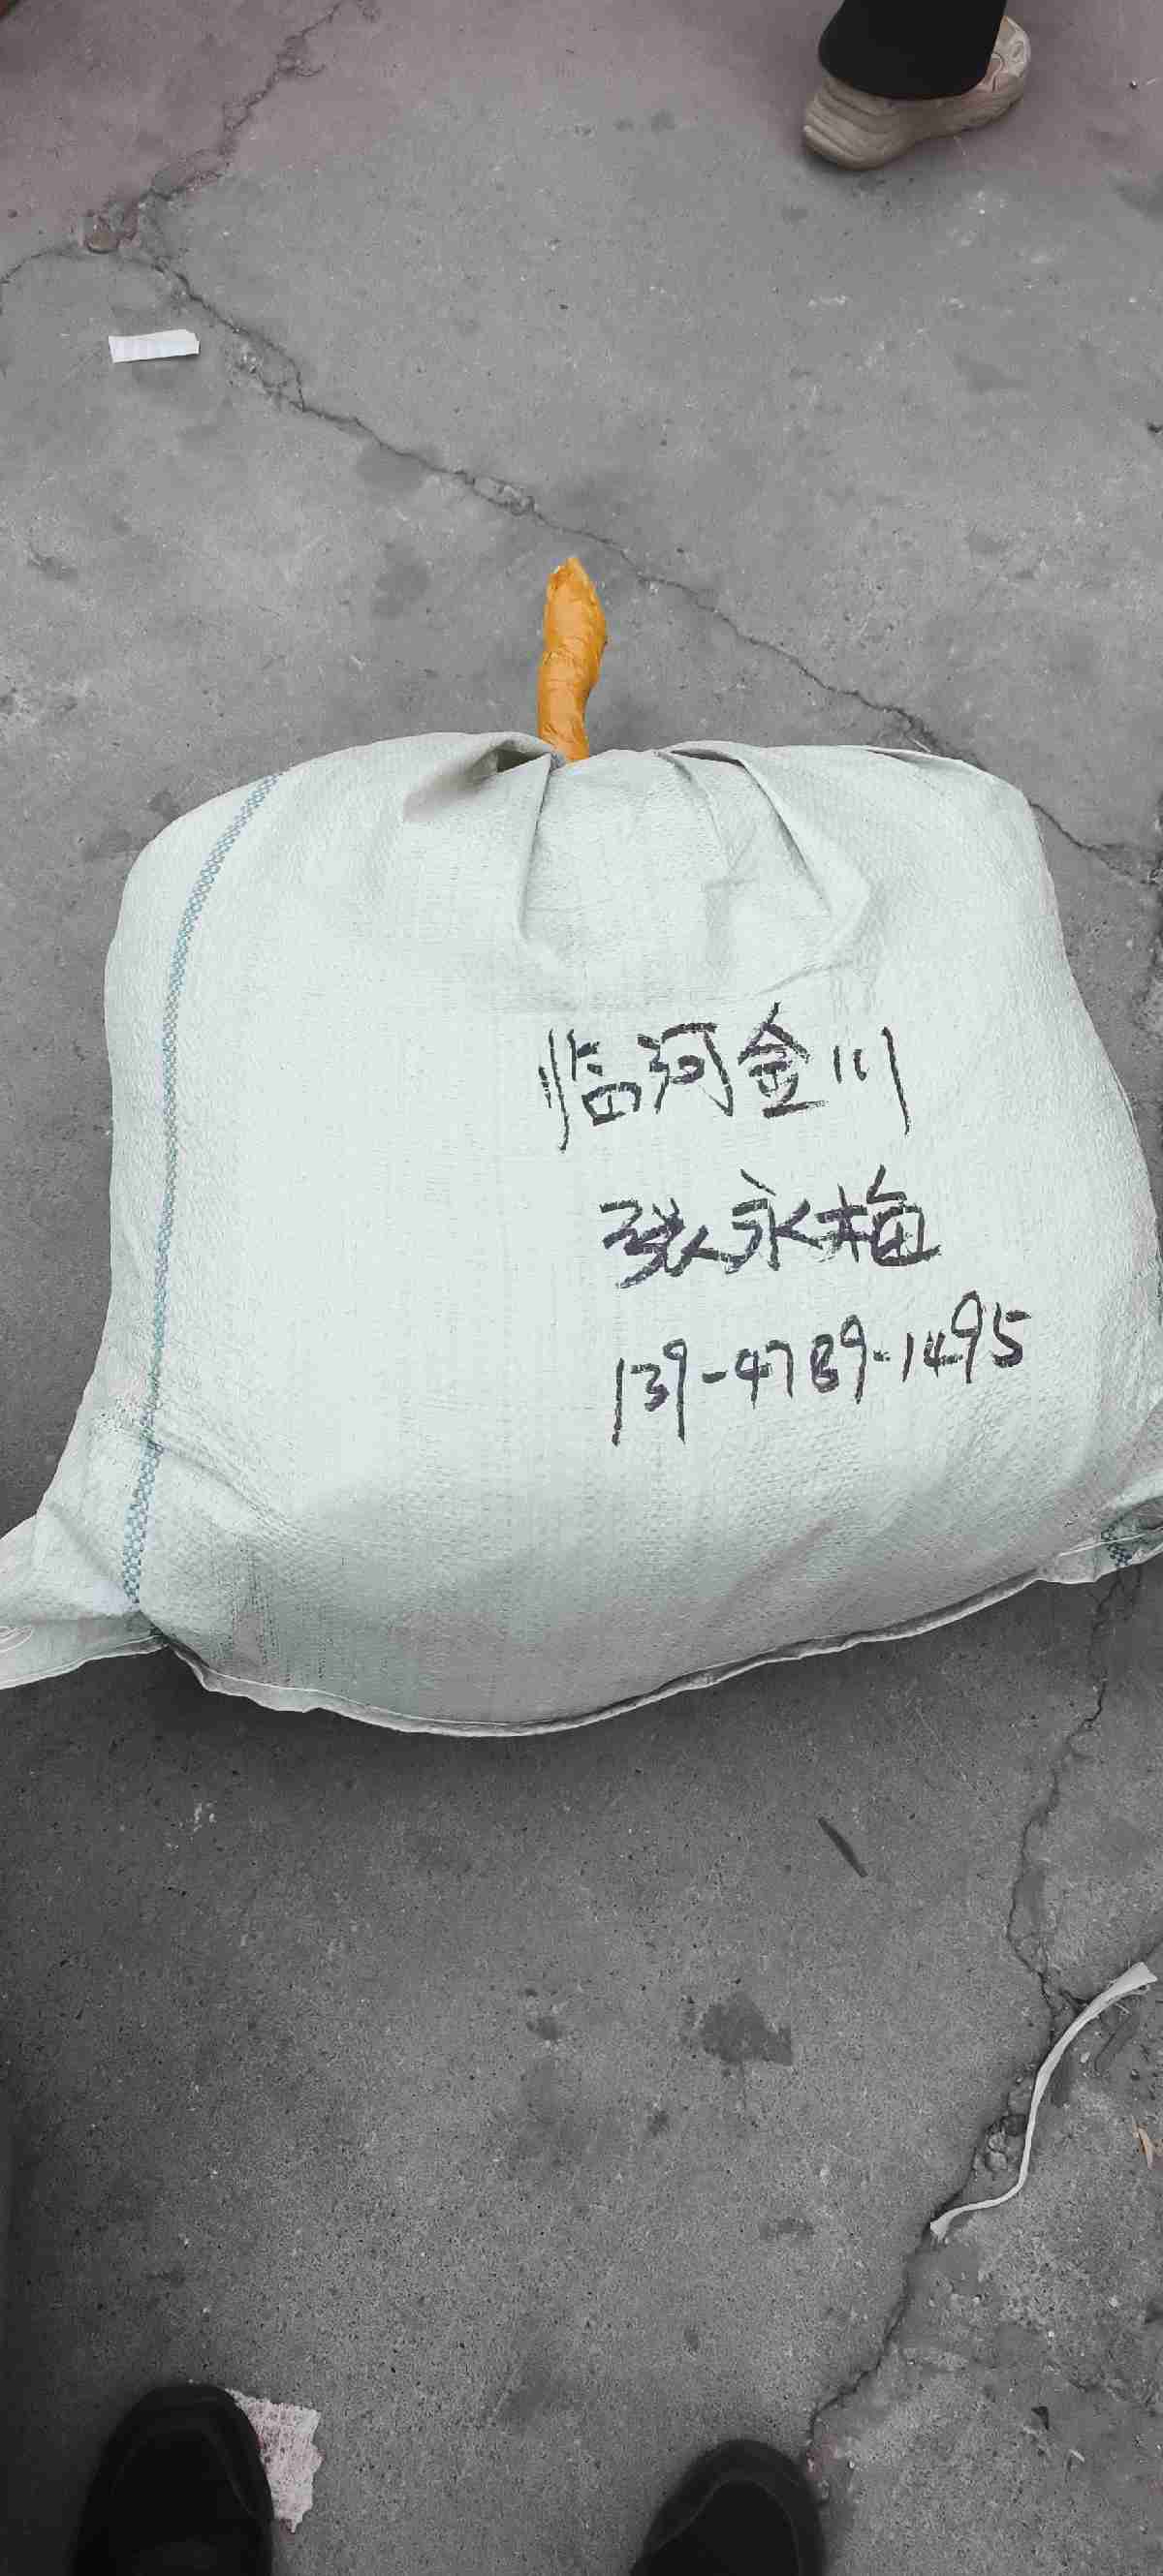 临河金川
张永梅
139-4789-1495